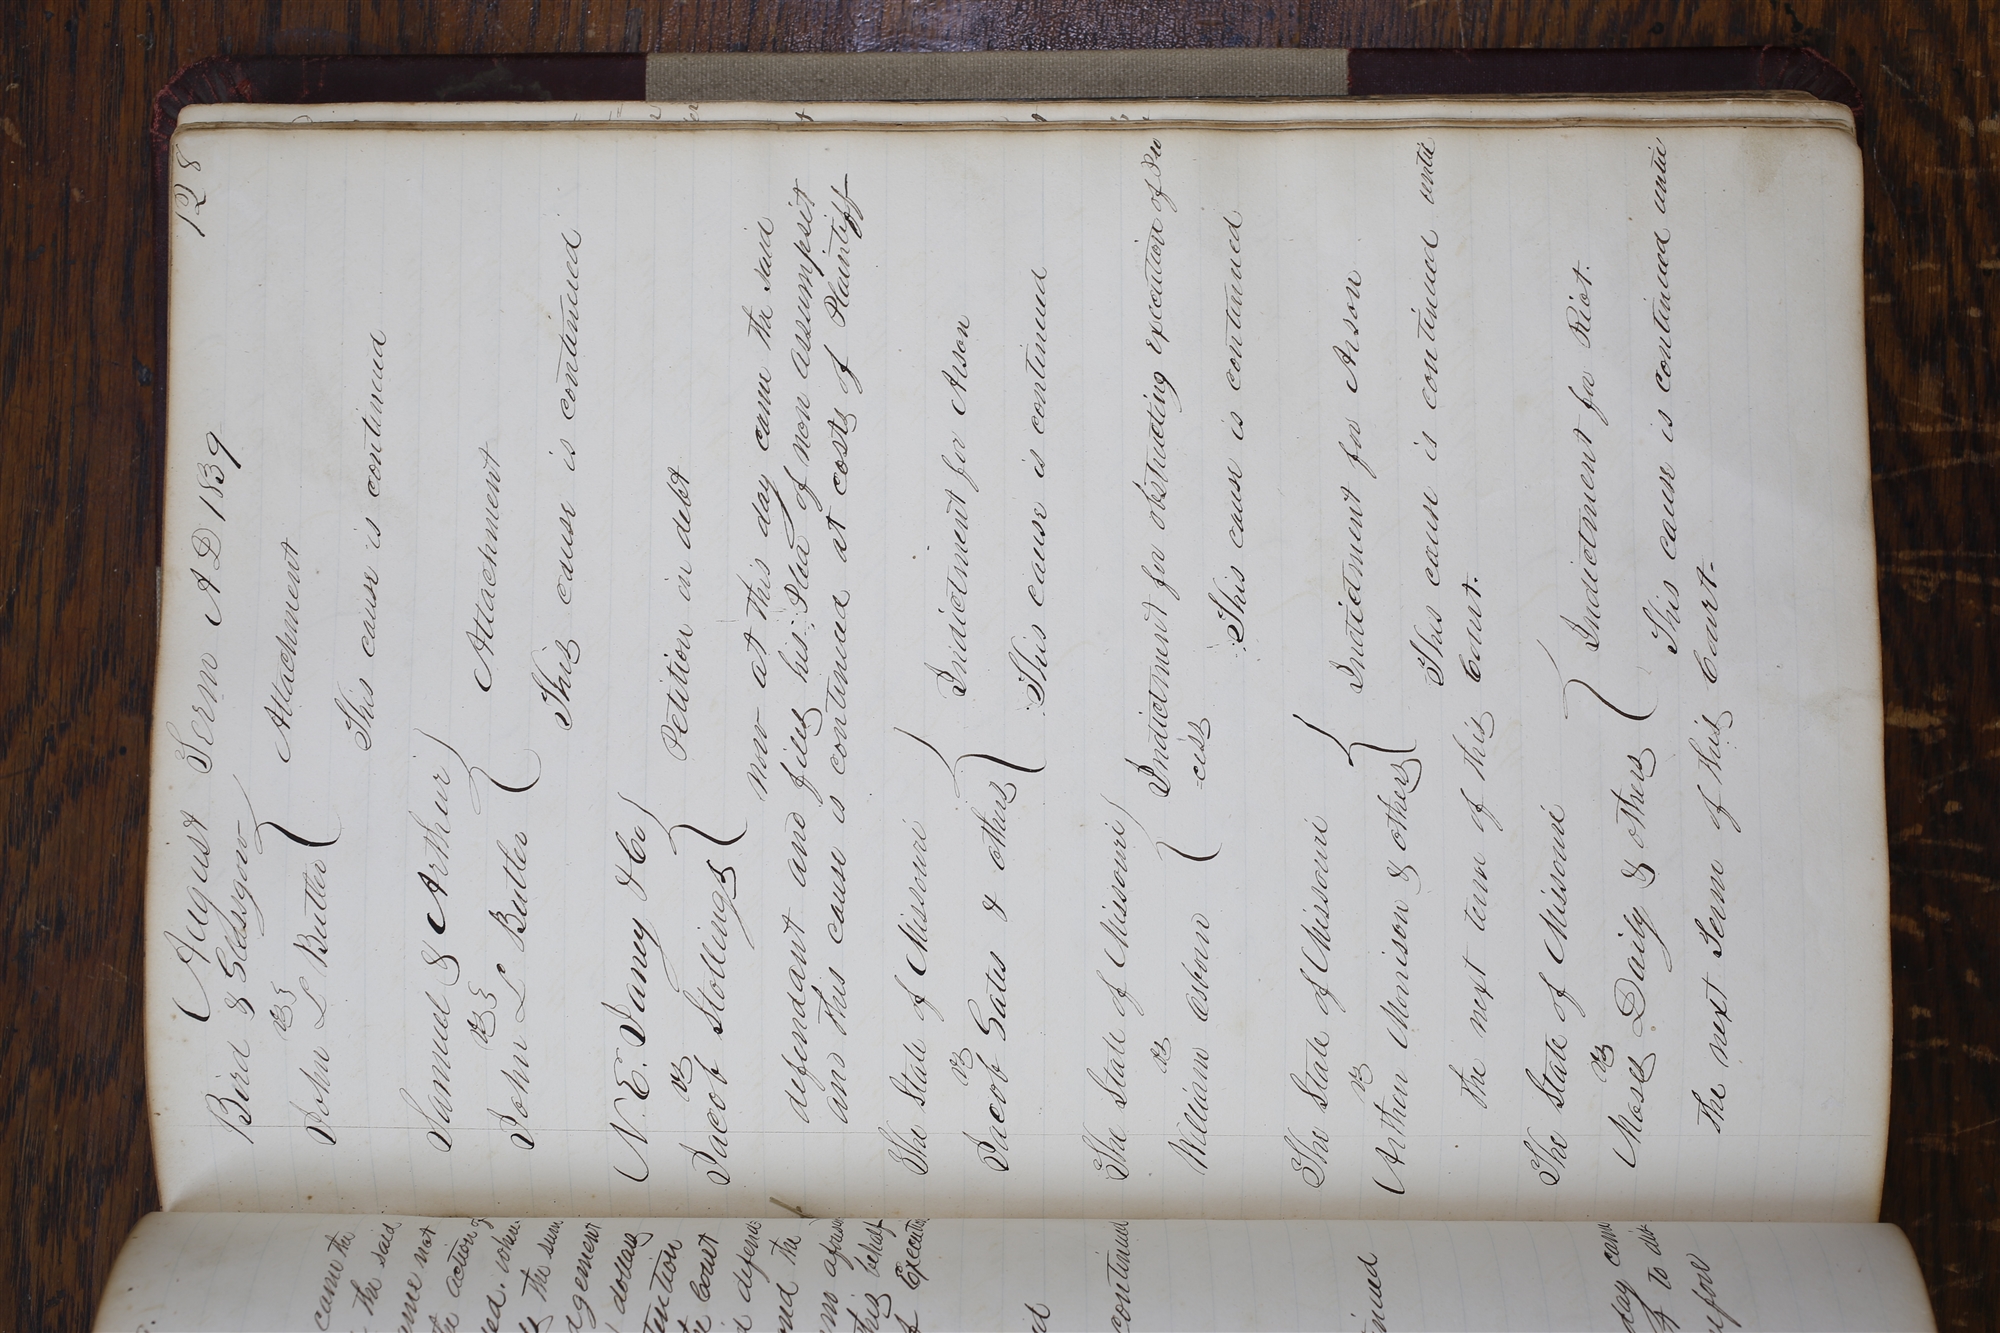 August Term A D 1839
128
Bird & Glasgow
vs
Attachment
John L Butler
This cause is continued
Samuel & Arthur
vs
Attachment
John L Butler
This cause is continued
N. E. Janey & Co
vs
Petition in debt
Jacob Stollings
Now at this day came the said
defendant and files his Plea of non assumpsit
and this cause is continued at costs of Plaintiff
The State of Missouri
vs
Indictment for Arson
Jacob Gates & others
This cause is continued
The State of Missouri
vs
Indictment for obstructing execution of Pro
William Osborn
-cess
This cause is continued
The State of Missouri
vs
Indictment for Arson
Arthur Morrison & others
This cause is continued until
the next term of this Court.
The State of Missouri
vs
Indictment for Riot.
Moses Daily & others
This cause is continued until
the next Term of this Court.
came the
the said
not
action
the sum
dollars
Court
and the
this behalf
of Execution
continued
day came
to